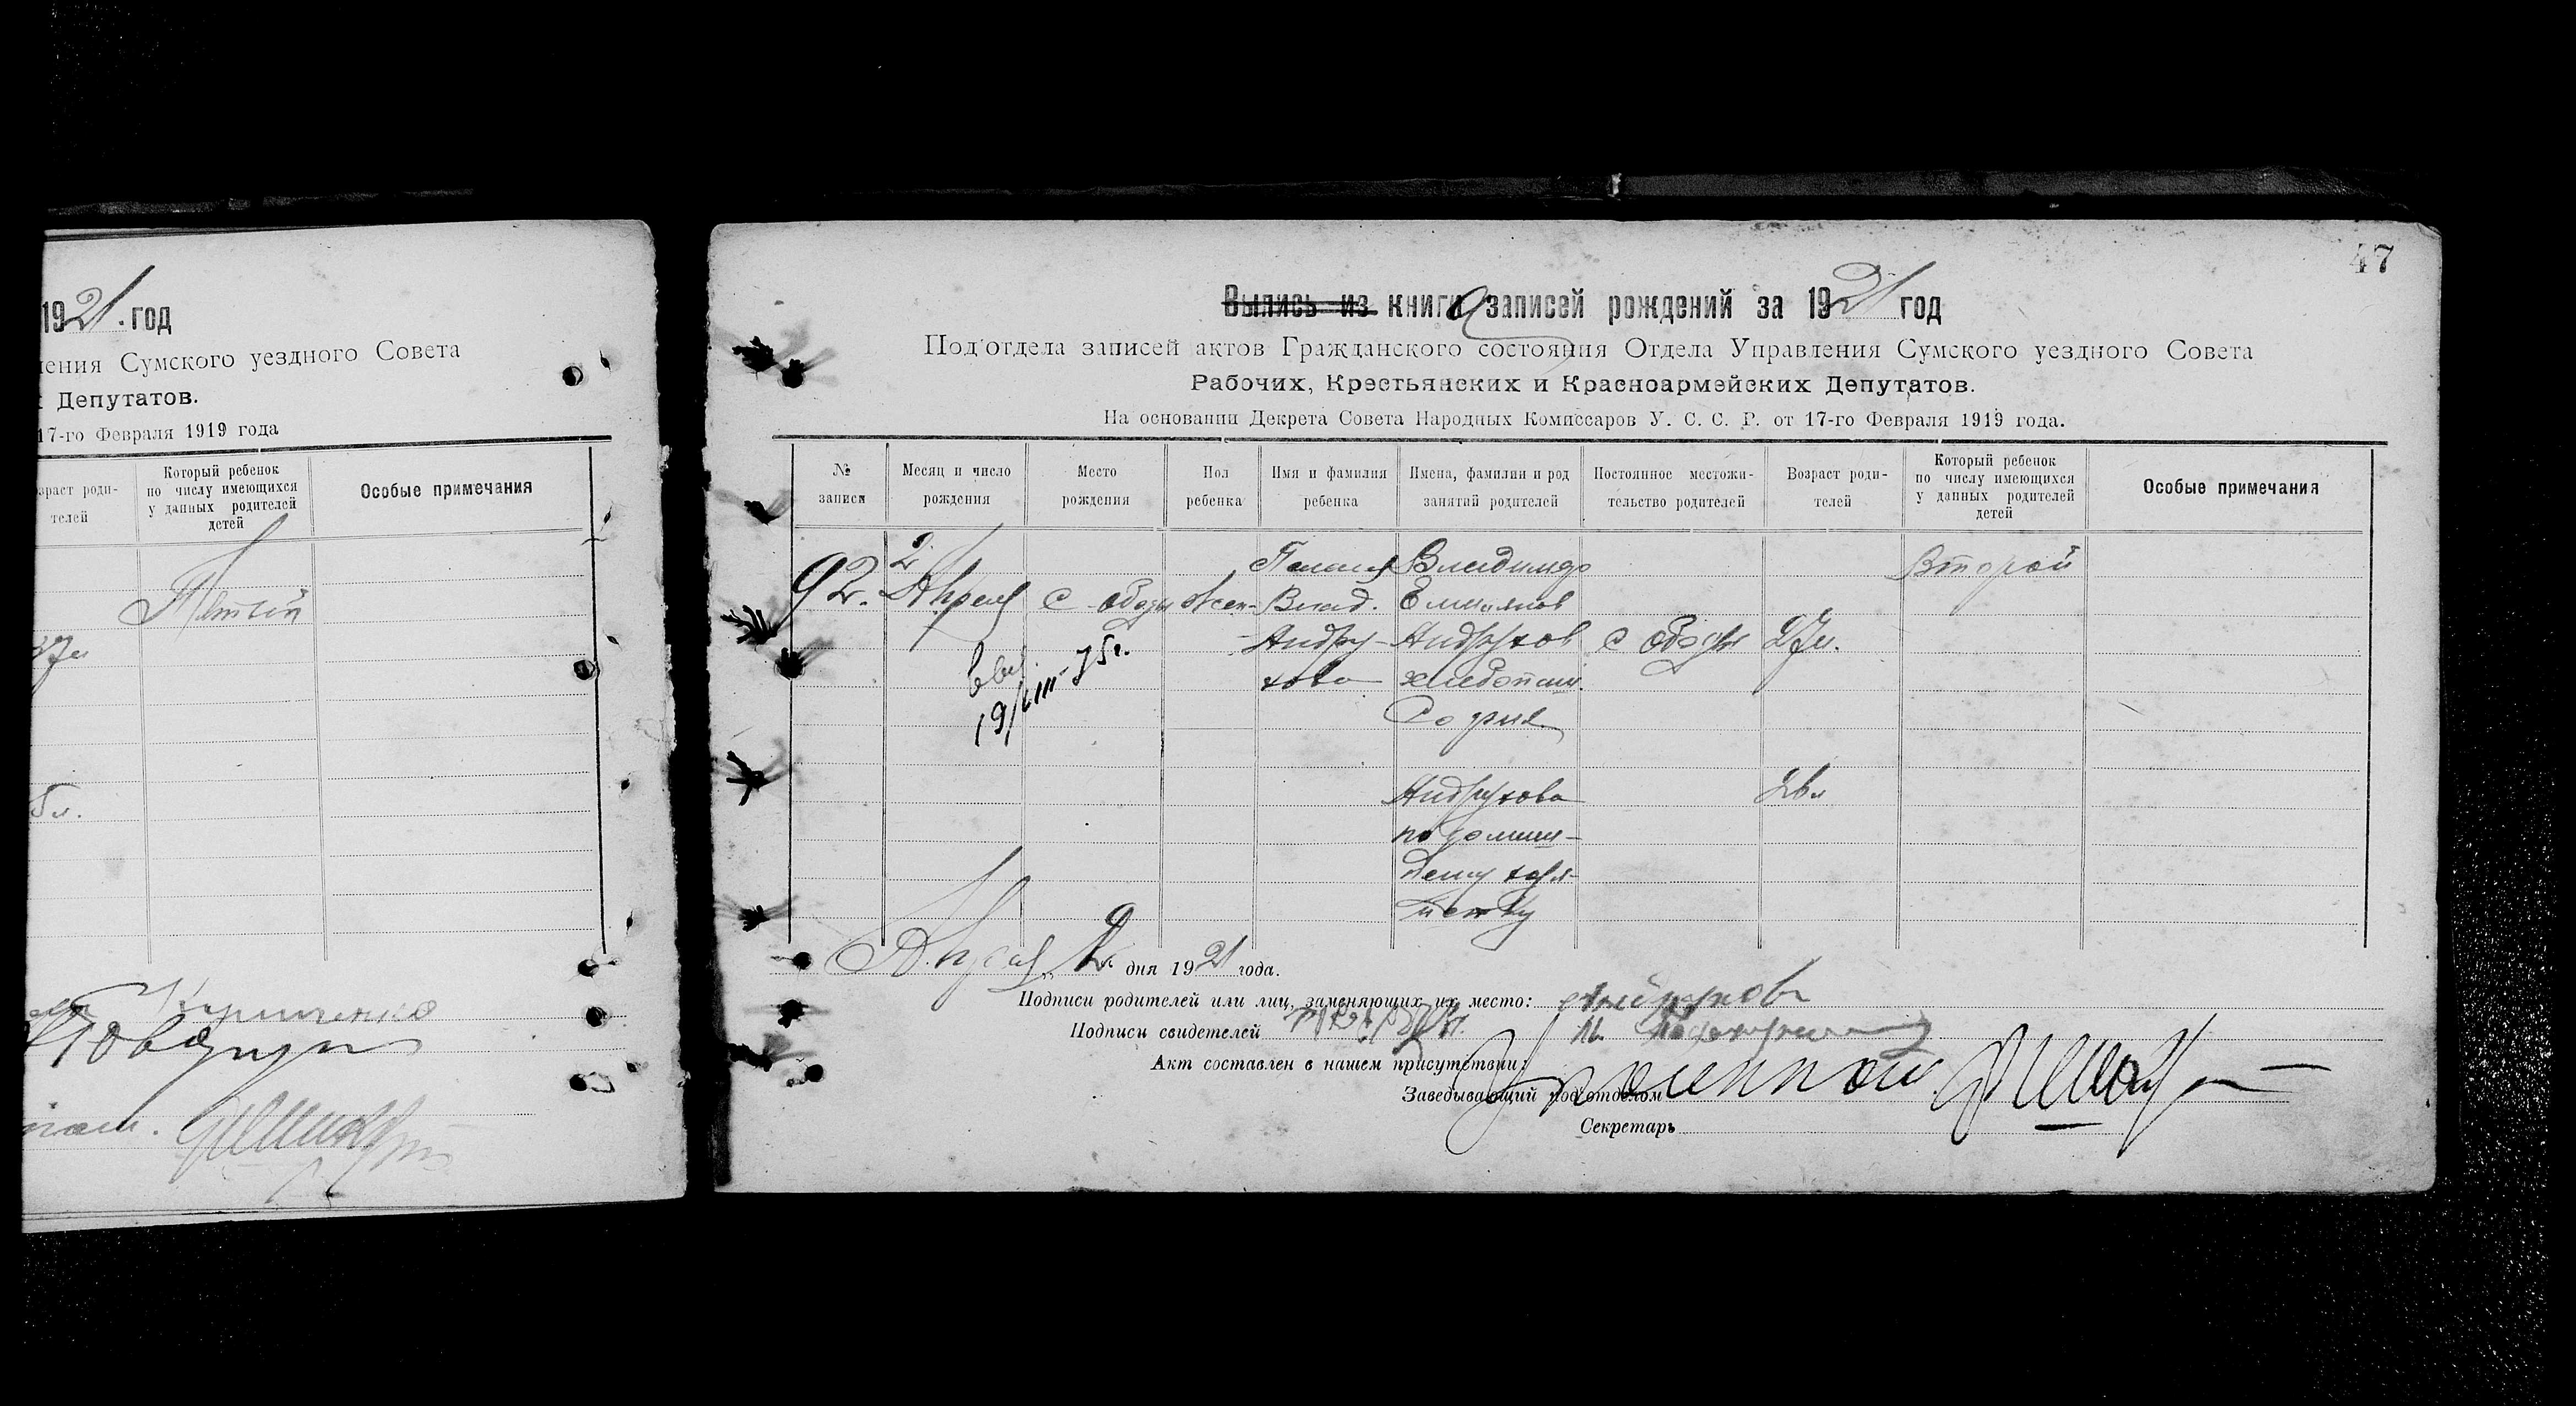 1921. год
ления Сумского уездного Совета
Депутатов.
17-го Февраля 1919 года
зраст роди-
телей
Который ребенок
по числу имеющихся
у данных родителей
детей
Особые примечания
Пятый
37л
5л.
47
Выпись из книга записей рождений за 1921 год
Под'отдела записей актов Гражданского состояния Отдела Управления Сумского уездного Совета
Рабочих, Крестьянских и Красноармейских Депутатов.
На основании Декрета Совета Народных Комиссаров У. С. С. Р. от 17-го Февраля 1919 года.
№
записи
Месяц и число
рождения
Место
рождения
Пол
ребенка
Имя и фамилия
ребенка
Имена, фамилии и род
занятий родителей
Постоянное местожи-
тельство родителей
Возраст роди-
телей
Который ребенок
по числу имеющихся
у данных родителей
детей
Особые примечания
92.
2
Апреля
с Ободы
Жен-
Влад.
Андру-
хова
Владимир
Емилянов
Андрухов
хлебопаш.
София
Андрухова
по домаш-
нему хозя-
йству
с Ободы
27л.
26л
Второй
19/VIII-75г.
Апреля 2 дня 1921 года.
Подписи родителей или лиц, заменяющих их место: Андрухов
Подписи свидетелей
Акт составлен в нашем присутствии:
Заведывающий под'отделом
Секретарь